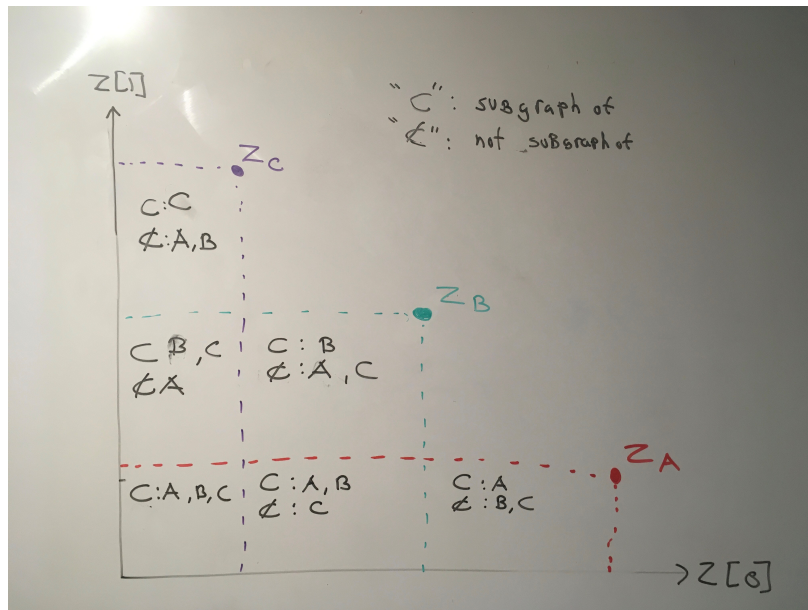 Z[1]
"⊂": subgraph of
"⊄": not subgraph of
Z_C
⊂:C
⊄:A,B
Z_B
⊂ B,C
⊄ A
⊂:B
⊄:A,C
Z_A
⊂:A,B,C
⊂:A,B
⊄:C
⊂:A
⊄:B,C
Z[0]